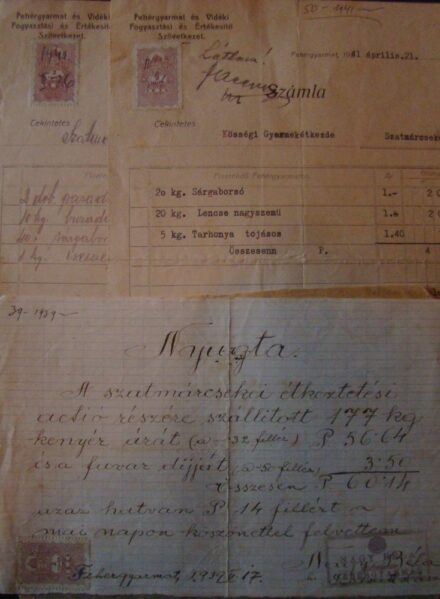 Fehérgyarmat és Vidéki
Fogyasztási és Értékesítő
Szövetkezet.
Cekintetes
2 dob
10 kg.
1 kg.
Fehérgyarmat és Vidéki
Fogyasztási és Értékesítő
Szövetkezet.
50-1941-
Fehérgyarmat, 1941 április 21.
Láttam!
Számla
Cekintetes
Községi Gyermekétkezde
Szatmárcseke
20 kg. Sárgaborsó 1.-
20 kg. Lencse nagyszemü 1.-
5 kg. Tarhonya tojásos 1.40
Összesenn P.
39-1939-
Nyugta.
A szatmárcsekei étkeztetési
actió részére szállított 177 kg
kenyér árát (a-32 fillér) P 56·64
és a fuvar díjjért (a-50 fillér) 3·50
Összesen P 60·14
azaz hatvan P 14 fillért a
mai napon köszönettel felvettem
Fehérgyarmat, 1939 17.
Nagy Béla